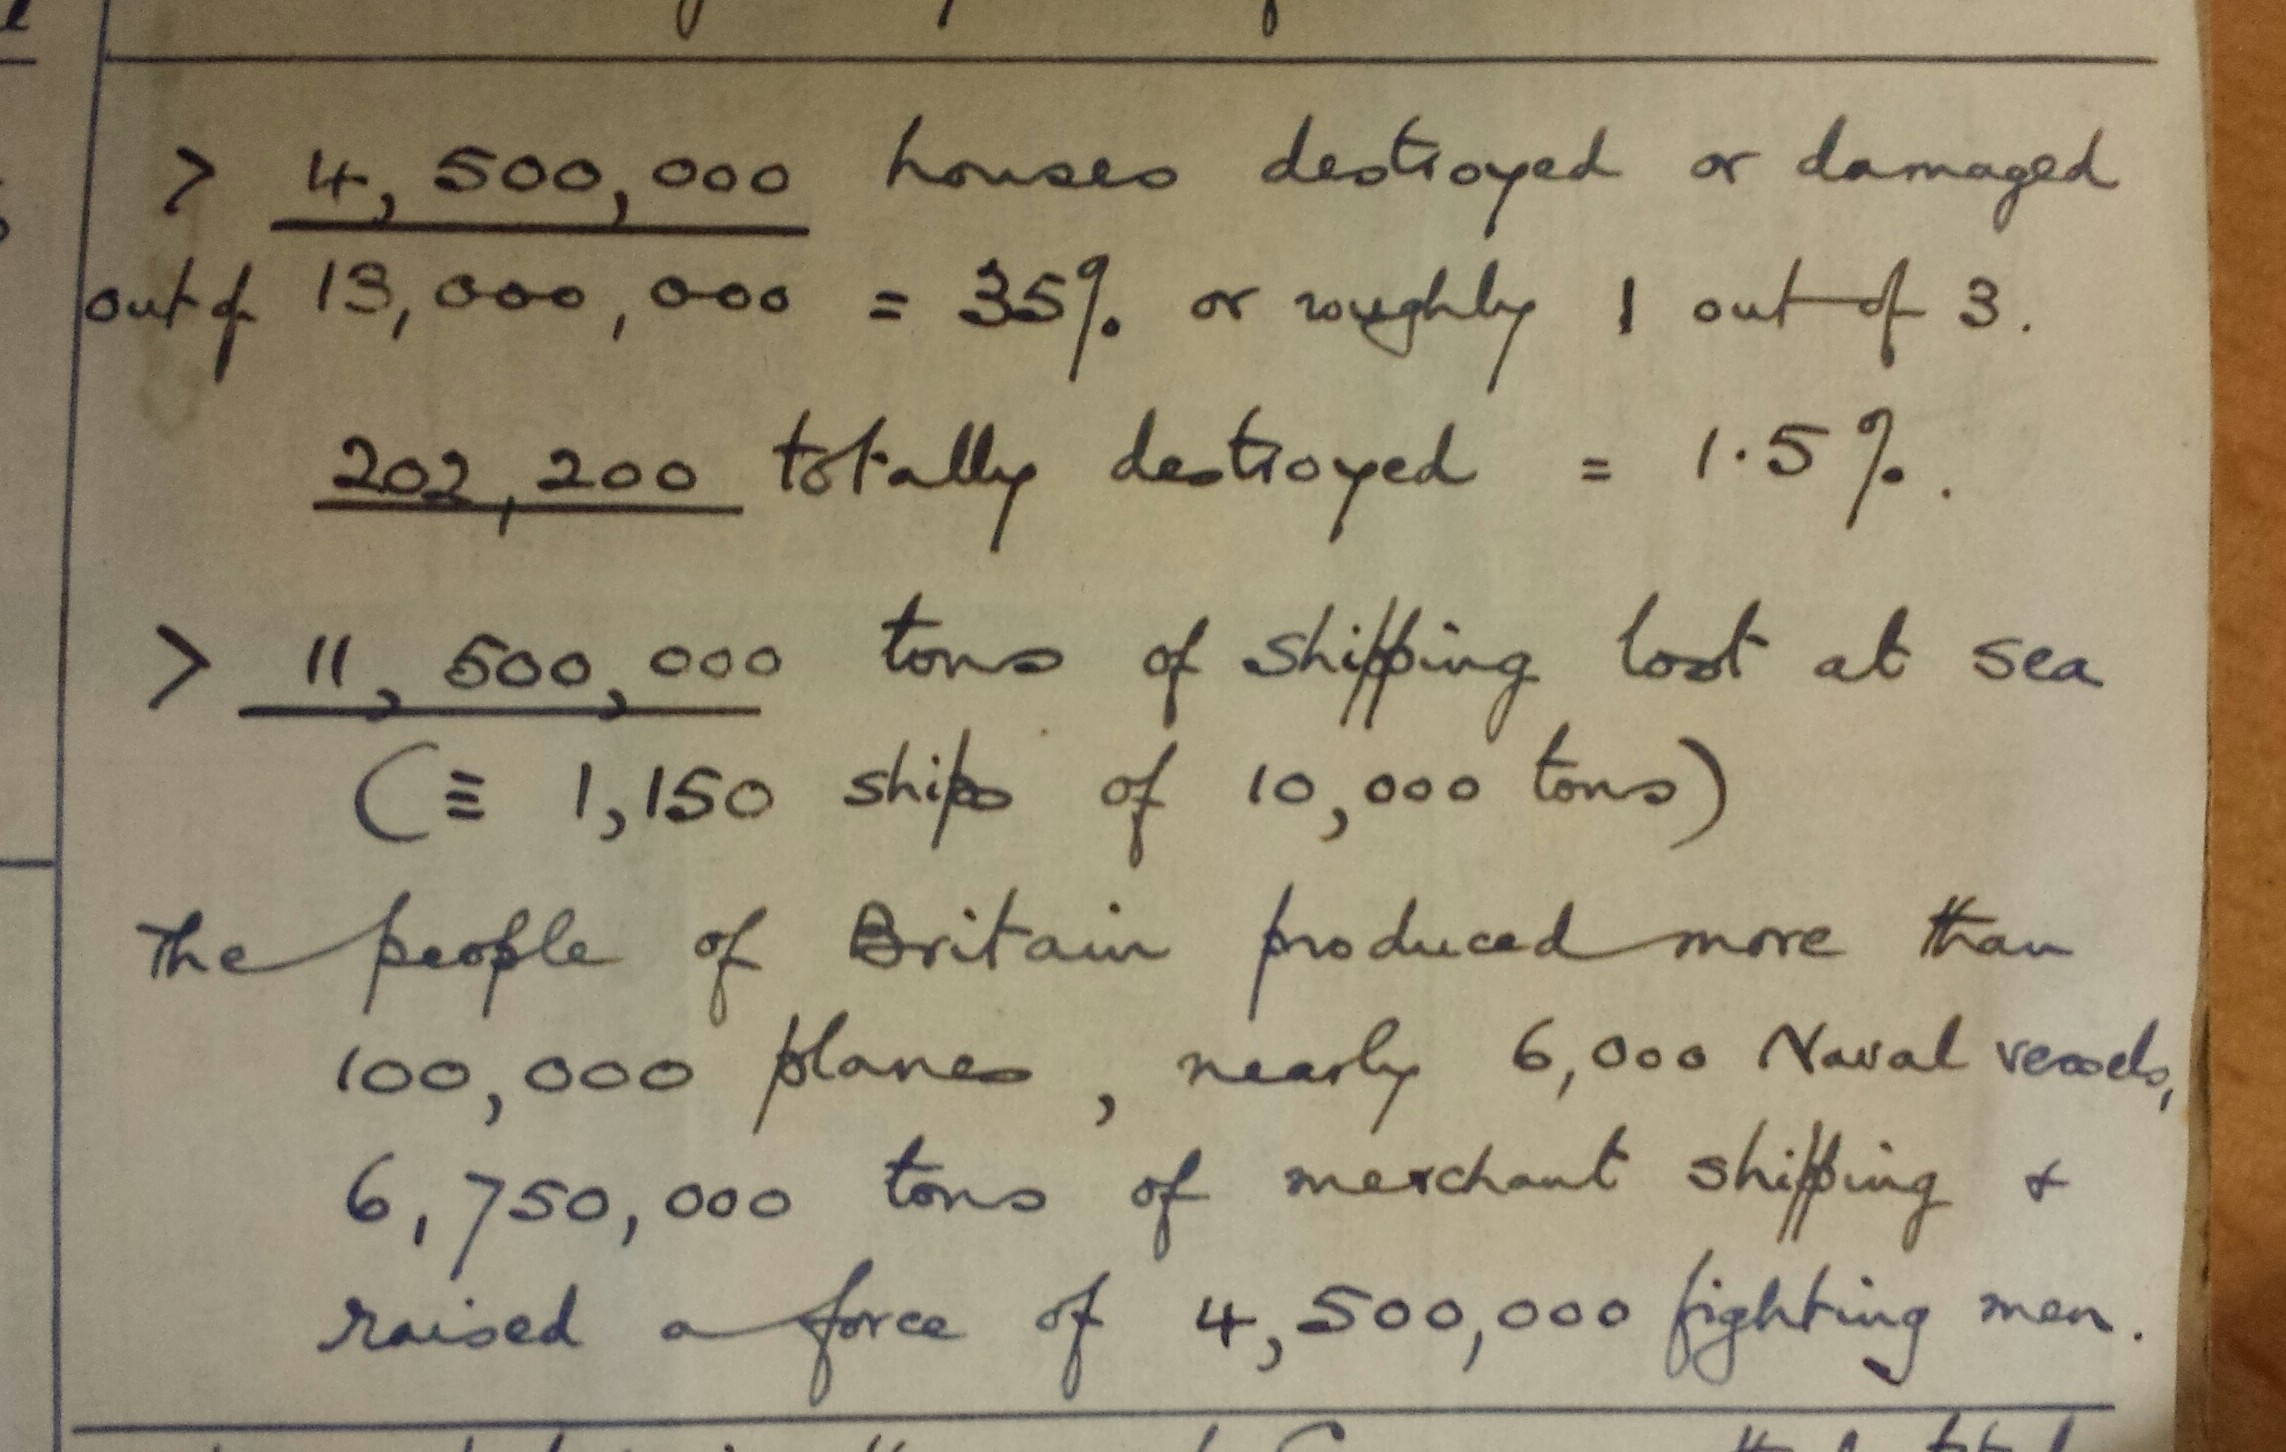 > 4,500,000 houses destroyed or damaged
out of 13,000,000 = 35% or roughly 1 out of 3.
202,200 totally destroyed = 1.5%.
> 11,500,000 tons of shipping lost at sea
(≡ 1,150 ships of 10,000 tons)
The people of Britain produced more than
100,000 planes, nearly 6,000 Naval vessels,
6,750,000 tons of merchant shipping &
raised a force of 4,500,000 fighting men.